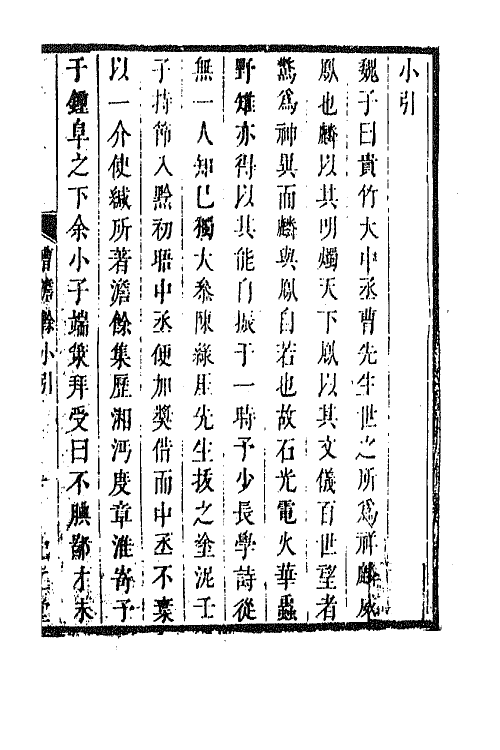 小引
魏子曰貴竹大中丞曹先生世之所爲祥麟威
鳳也麟以其明燭天下鳳以其文儀百世望者
驚爲神異而麟與鳳自若也故石光電火華蟲
野雉亦得以其能自振于一時予少長學詩從
無一人知已獨大叅陳祿用先生拔之塗泥壬
子持節入黔初晤中丞便加奬借而中丞不棄
以一介使緘所著澹餘集歷湘沔度章淮寄予
于鍾阜之下余小子端策拜受曰不腆鄙才未
曹澹餘小引